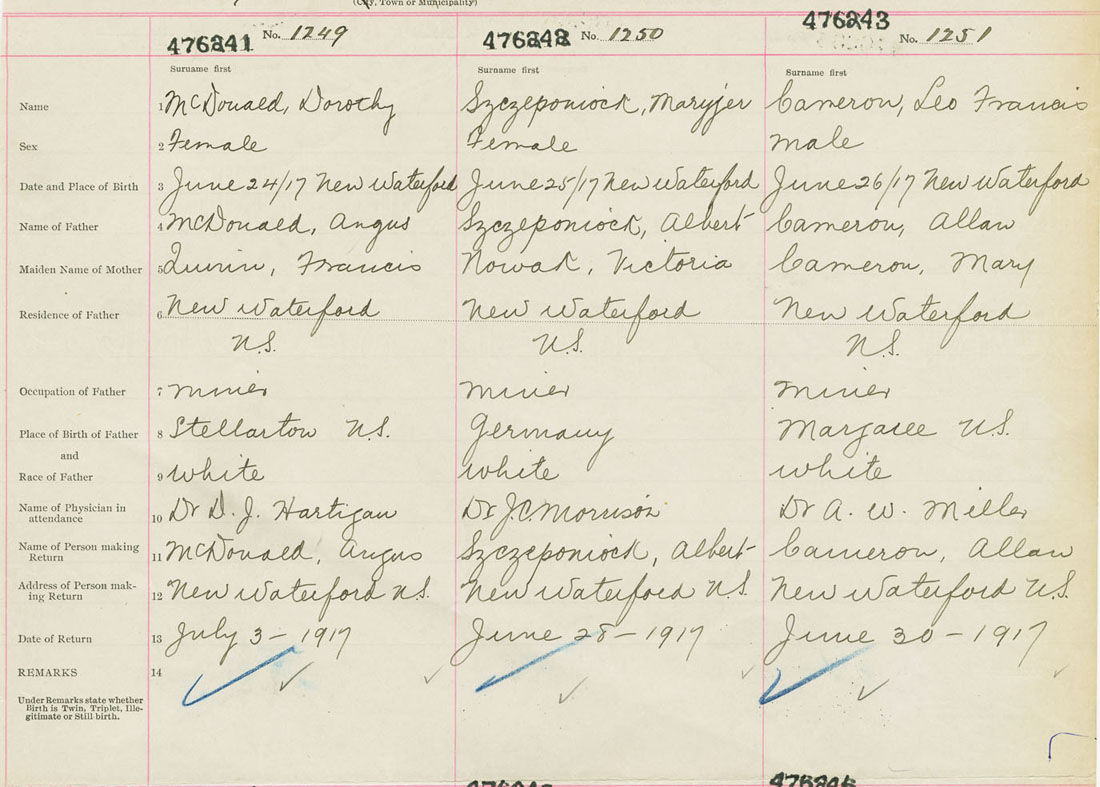 (City, Town or Municipality)
476241 No. 1249 476242 No. 1250 476243 No. 1251
Surname first Surname first Surname first
Name 1 McDonald, Dorothy Szczeponiock, Maryjer Cameron, Leo Francis
Sex 2 Female Female Male
Date and Place of Birth 3 June 24/17 New Waterford June 25/17 New Waterford June 26/17 New Waterford
Name of Father 4 McDonald, Angus Szczeponiock, Albert Cameron, Allan
Maiden Name of Mother 5 Quinn, Francis Nowak, Victoria Cameron, Mary
Residence of Father 6 New Waterford New Waterford New Waterford
N.S. N.S. N.S.
Occupation of Father 7 Miner Miner Miner
Place of Birth of Father 8 Stellarton N.S. Germany Margaree N.S.
and
Race of Father 9 White White White
Name of Physician in
attendance 10 Dr D. J. Hartigan Dr J.C. Morrison Dr A. W. Miller
Name of Person making
Return 11 McDonald, Angus Szczeponiock, Albert Cameron, Allan
Address of Person mak-
ing Return 12 New Waterford N.S. New Waterford N.S. New Waterford N.S.
Date of Return 13 July 3 - 1917 June 28 - 1917 June 30 - 1917
REMARKS 14
Under Remarks state whether
Birth is Twin, Triplet, Ille-
gitimate or Still birth.